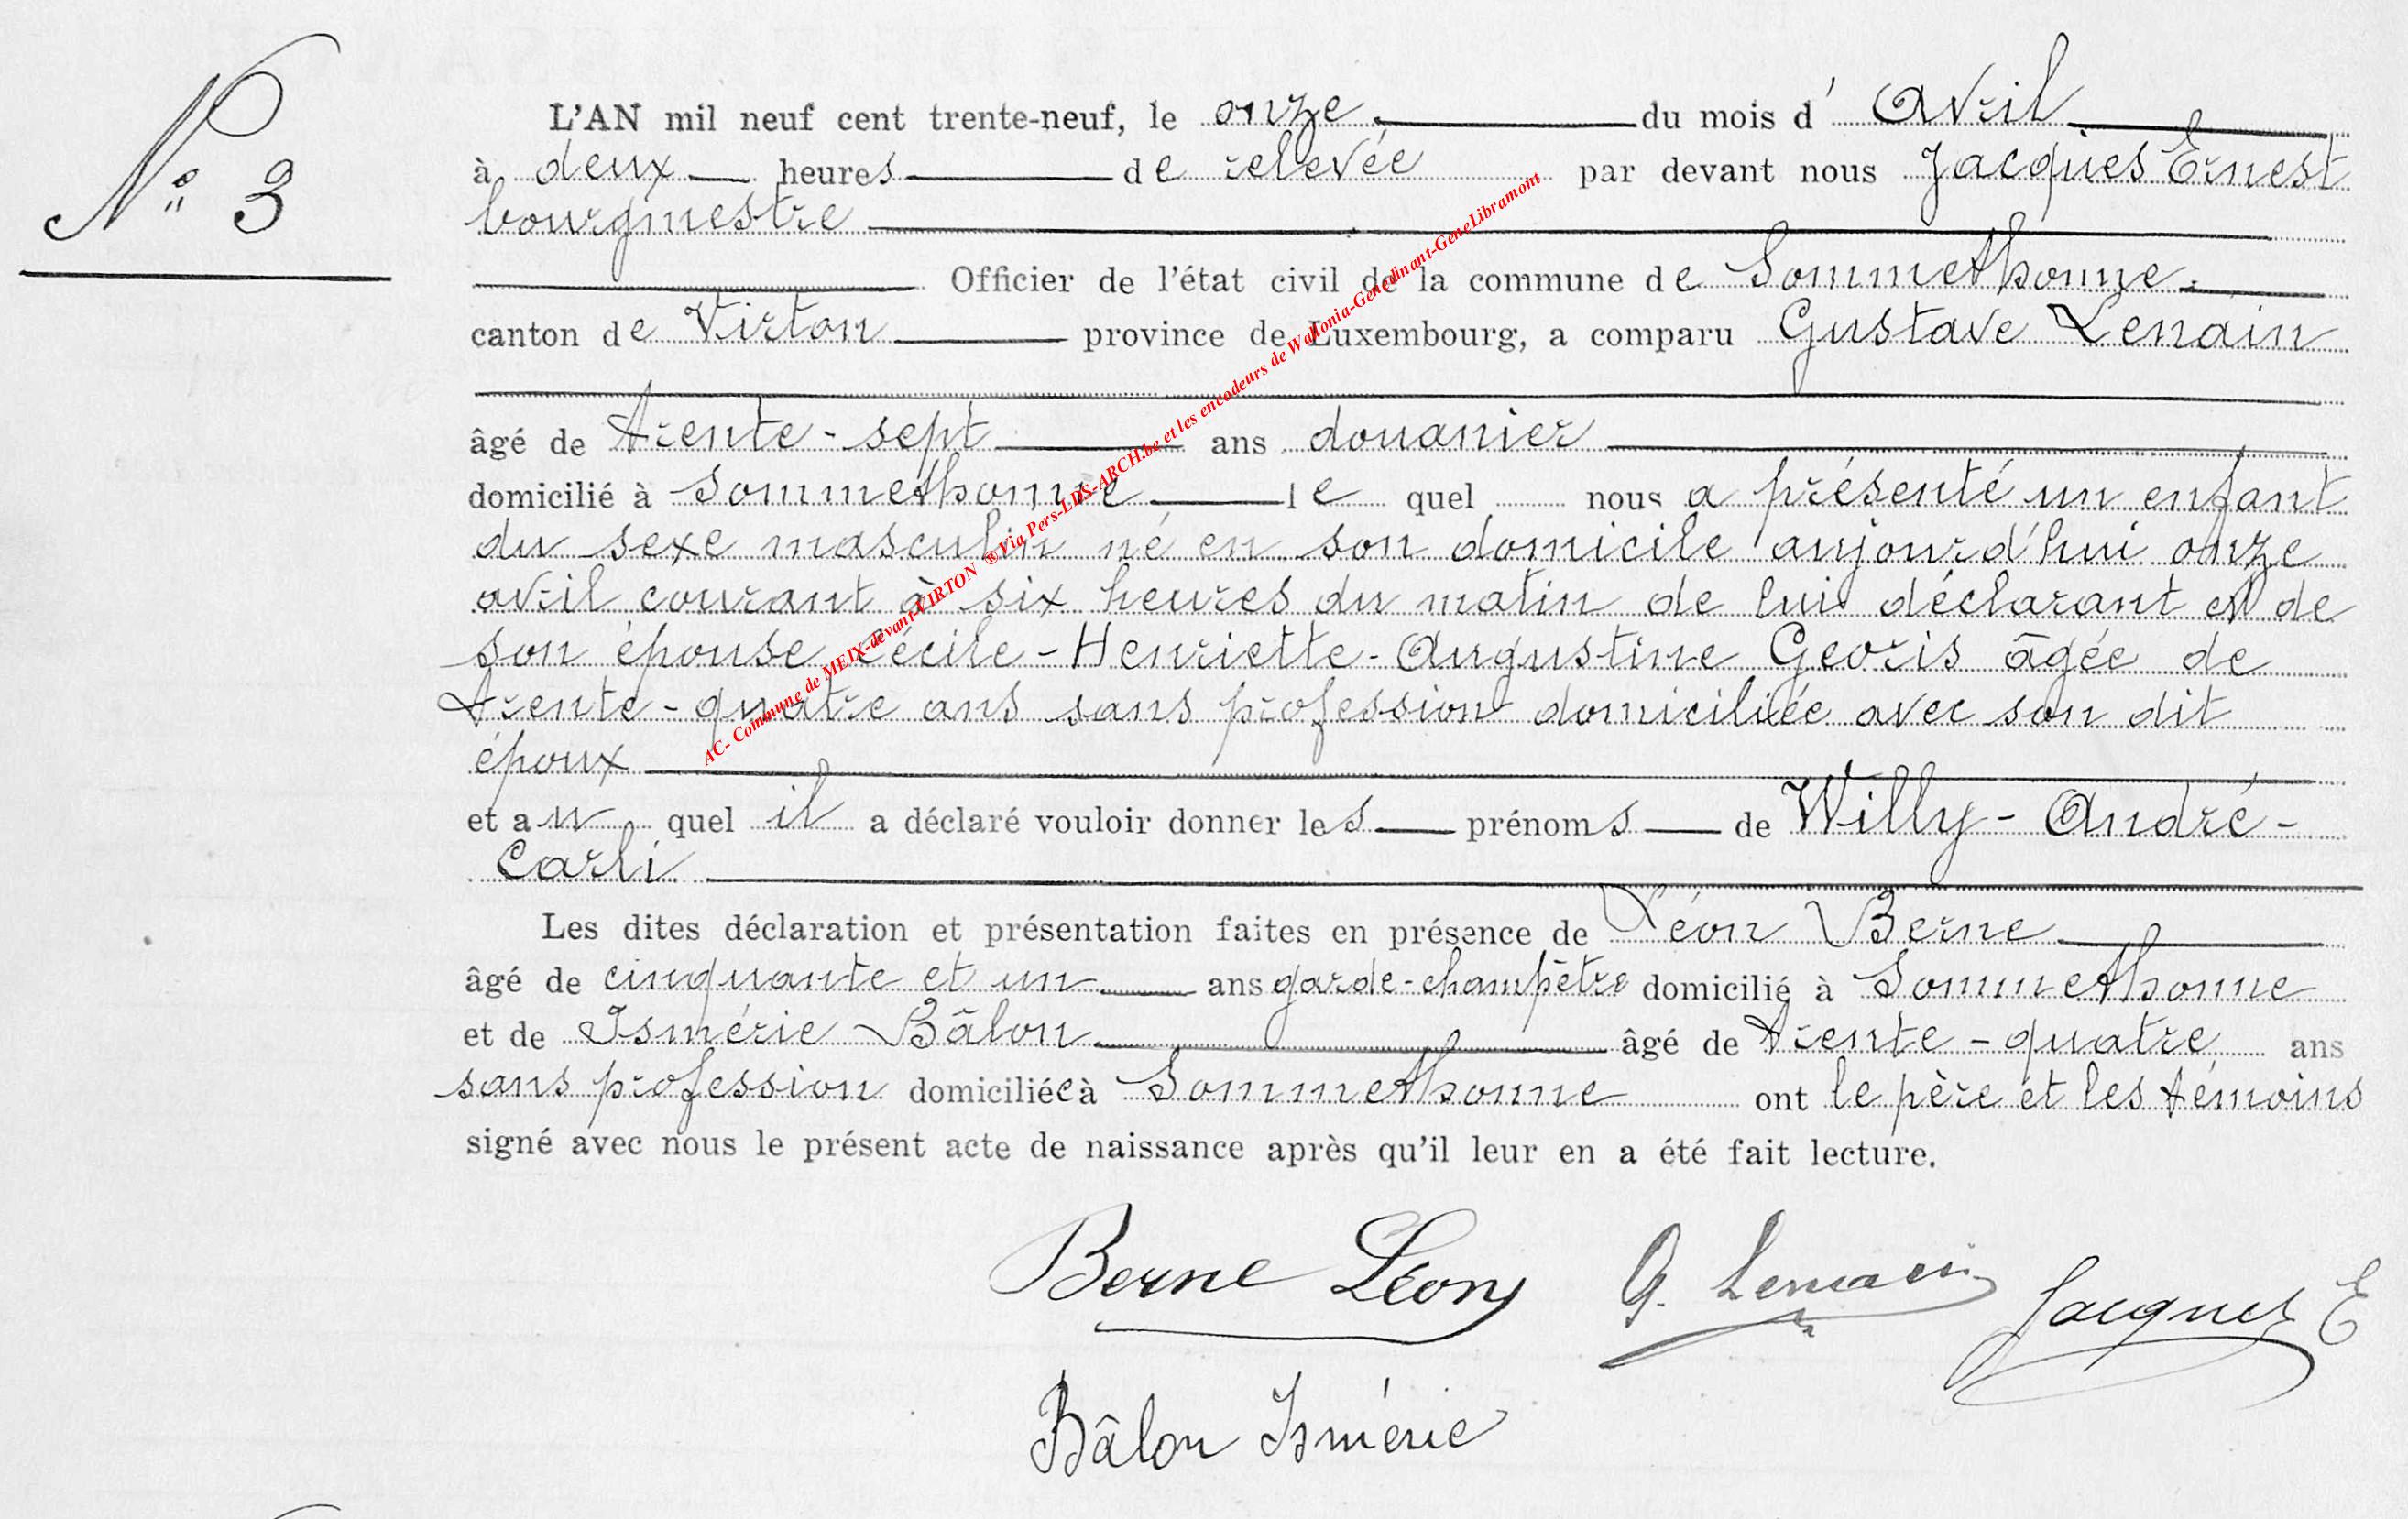 N° 3
L'AN mil neuf cent trente-neuf, le onze du mois d' Avril
à deux heures de relevée par devant nous Jacques Ernest
bourgmestre
Officier de l'état civil de la commune de Sommethonne
canton de Virton province de Luxembourg, a comparu Gustave Lenain
âgé de trente-sept ans douanier
domicilié à Sommethonne le quel nous a présenté un enfant
du sexe masculin né en son domicile aujourd'hui onze
avril courant à six heures du matin de lui déclarant et de
son épouse Cécile-Henriette-Augustine Georis âgée de
trente-quatre ans sans profession domiciliée avec son dit
époux
et au quel il a déclaré vouloir donner les prénoms de Willy-André-
Carli
Les dites déclaration et présentation faites en présence de Léon Berne
âgé de cinquante et un ans garde-champêtre domicilié à Sommethonne
et de Ismérie Bâlon âgé de trente-quatre ans
sans profession domiciliée à Sommethonne ont le père et les témoins
signé avec nous le présent acte de naissance après qu'il leur en a été fait lecture.
Berne Léon G. Lenain Jacques E
Bâlon Ismérie
AC- Commune de MEIX-devant-VIRTON ® Via Pers-LDS-ARCH.be et les encodeurs de Wallonia-Genedinant-GeneLibramont